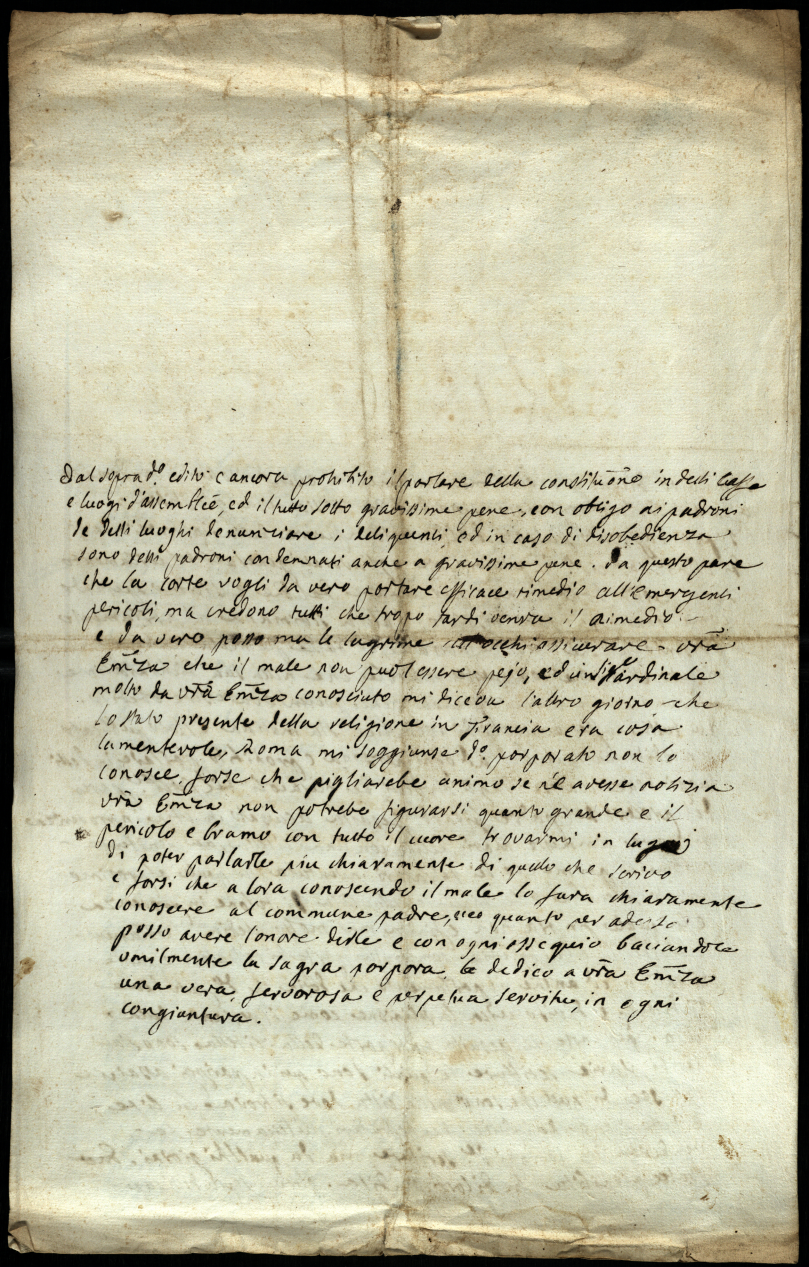 Dal sopra d.º edito e ancora prohibito il parlare della constitut̄one in detti Caffe
e luogi d'assemblèè, ed il tutto sotto gravissime pene, con obligo ai padroni
de detti luoghi denunciare i deliquenti, ed in caso di disobedienza
sono detti padroni condennati anche a gravissime pene. da questo pare
che la corte vogli da vero portare efficace rimedio all'emergenti
pericoli, ma credono tutti che tropo tardi venra il rimedio
e da vero posso ma le lagrime occhi assicurare vr̄a
Em̄za che il male non puol essere pejo, ed un Cardinale
molto da vr̄a Em̄za conosciuto mi diceva l'altro giorno che
lo stato presente della religione in Francia era cosa
lamentevole, Roma mi soggiunse d.º porporato non lo
conosce, forse che pigliarebe animo se n'e avesse notizia
vr̄a Em̄za non potrebe figurarsi quanto grande e il
pericolo e bramo con tutto il cuore trovarmi in
di poter parlarle piu chiaramente di quelo che scrivo
e forsi che a lora conoscendo il male lo fara chiaramente
conoscere al commune padre, eco quanto per adesso
posso avere l'onore dirle e con ogni ossequio baciandole
umilmente la sagra porpora, le dedico a vr̄a Em̄za
una vera, fervorosa e perpetua servitu, in ogni
congiuntura.